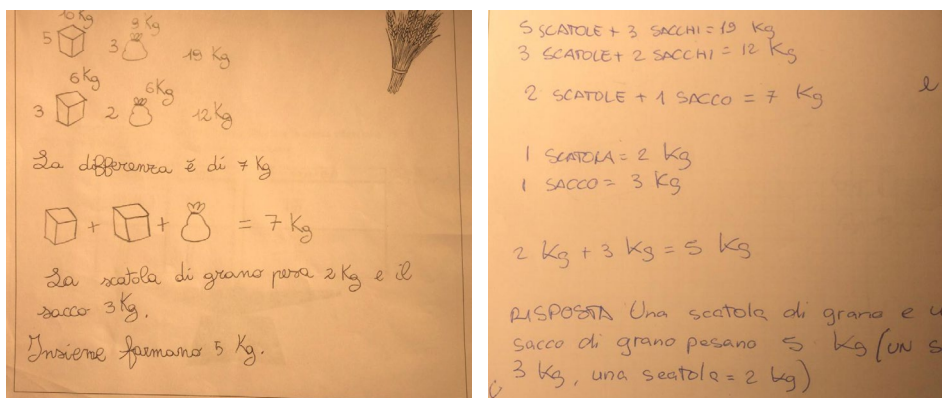 10 Kg
9 Kg
5 3 19 Kg
6 Kg
6 Kg
3 2 12 Kg
La differenza è di 7 Kg
+ + = 7 Kg
La scatola di grano pesa 2 Kg e il
sacco 3 Kg.
Insieme formano 5 Kg.
5 SCATOLE + 3 SACCHI = 19 Kg
3 SCATOLE + 2 SACCHI = 12 Kg
2 SCATOLE + 1 SACCO = 7 Kg
e
1 SCATOLA = 2 Kg
1 SACCO = 3 Kg
2 Kg + 3 Kg = 5 Kg
RISPOSTA Una scatola di grano e
sacco di grano pesano 5 Kg (UN
3 Kg, una scatola = 2 Kg)